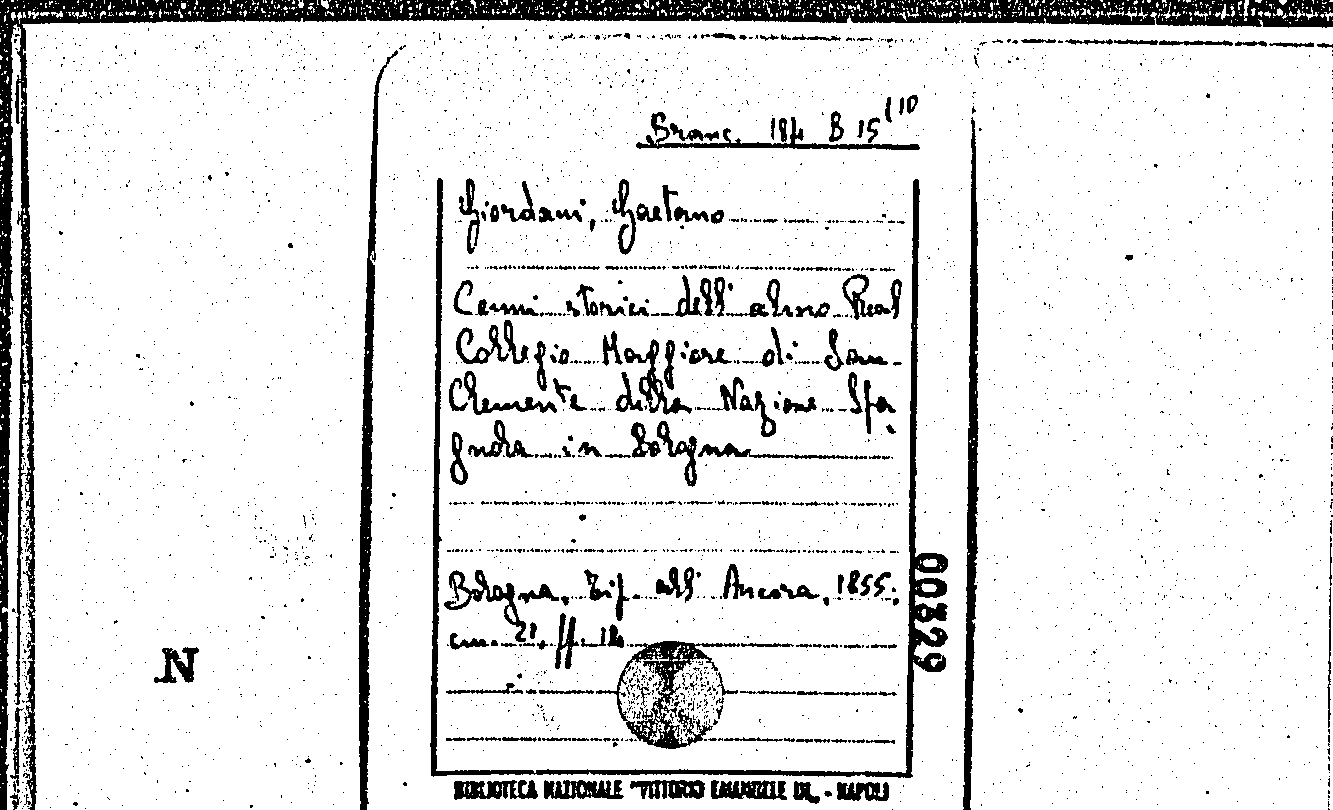 Branc. 184 B 15 (10
Giordani, Gaetano
Cenni storici dell' almo Real
Collegio Maggiore di San
Clemente della Nazione Spa
gnola in Bologna
Bologna, Tip. all' Ancora, 1855.
cm. 21, ff. 12
00829
N
BIBLIOTECA NAZIONALE "VITTORIO EMANUELE III" - NAPOLI